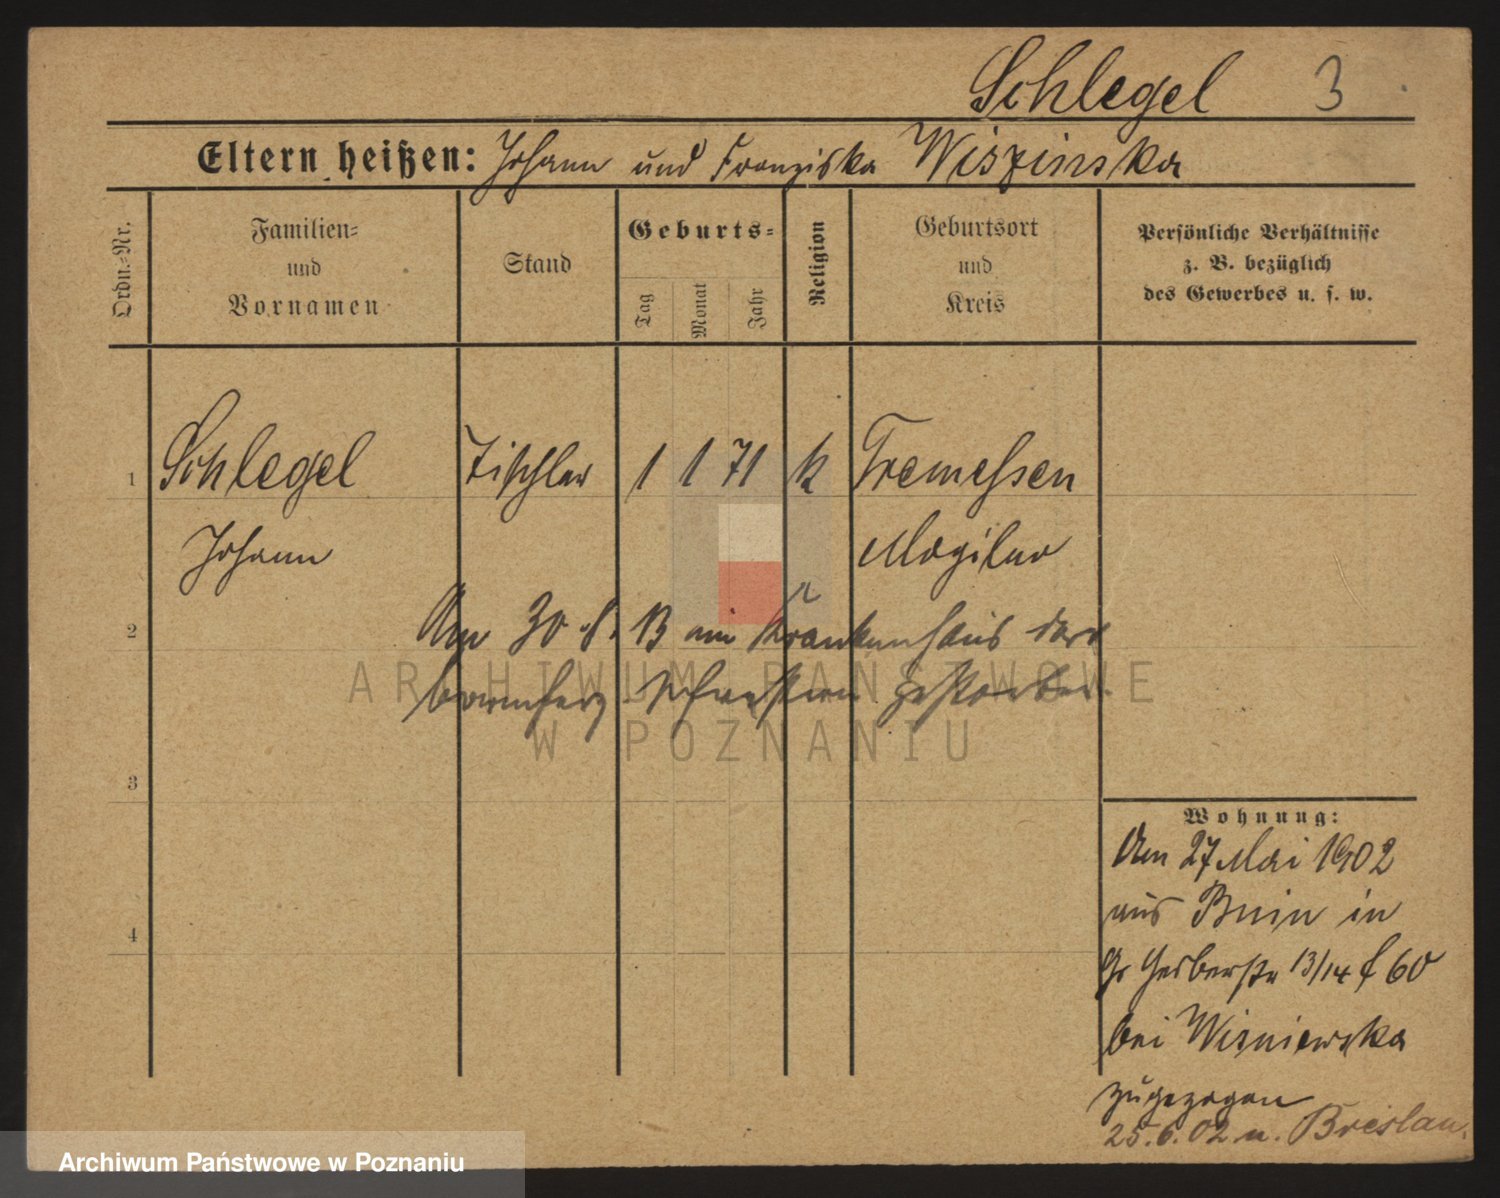 Schlegel 3
Eltern heißen: Johann und Franziska Wiszinska
Ordn.=Nr.
Familien=
und
Vornamen
Stand
Geburts=
Tag
Monat
Jahr
Religion
Geburtsort
und
Kreis
Persönliche Verhältnisse
z. B. bezüglich
des Gewerbes u. s. w.
1 Schlegel Tischler 1 1 71 k Tremessen
Johann Mogilno
2 Am 30.8. 13 im Krankenhaus der
barmherz. Schwestern gestorben.
3
4
Wohnung:
Am 27 Mai 1902
aus Bnin in
Gr Gerberstr 13/14 f 60
bei Wisniewska
zugezogen
25.6.02 n. Breslau.
ARCHIWUM PAŃSTWOWE
W POZNANIU
Archiwum Państwowe w Poznaniu